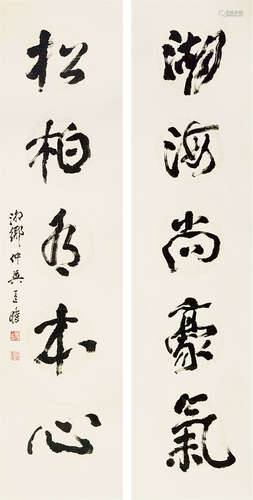 湖海尚豪氣
松柏有本心
湘鄉仲興王時